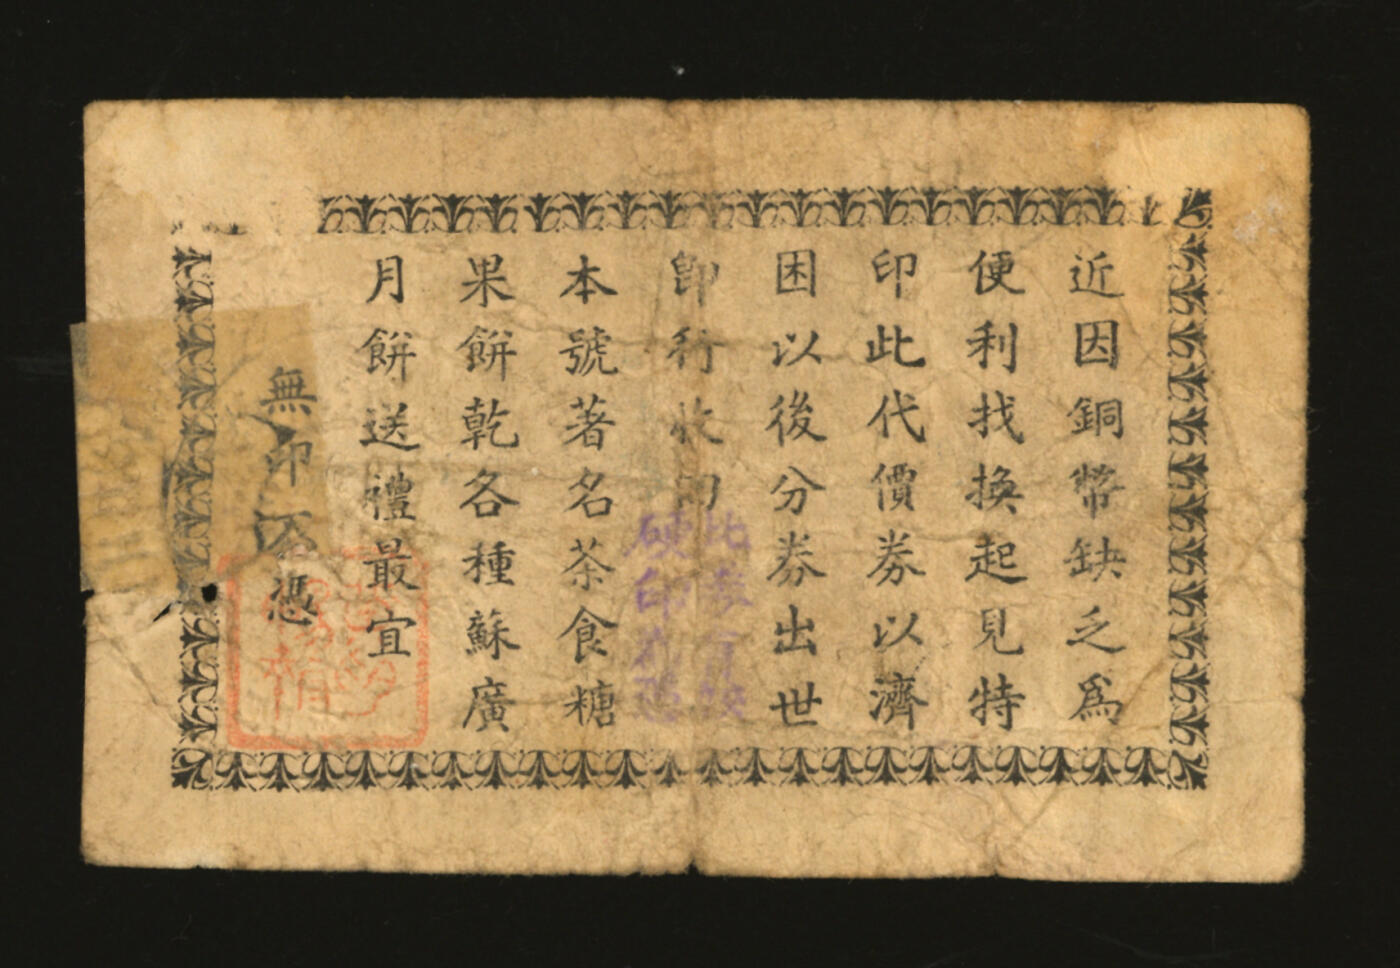 近因銅幣缺乏爲
便利找換起見特
印此代價券以濟
困以後分券出世
卽行收回
本號著名茶食糖
果餅乾各種蘇廣
月餅送禮最宜
無印不憑
此券
硬印為憑